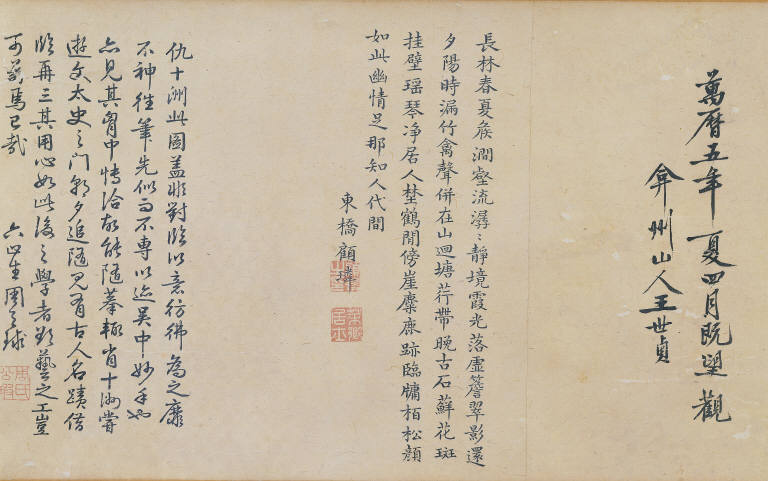 萬曆五年夏四月既望觀
弇州山人王世貞
長林春夏候澗壑流潺〻靜境霞光落虛簷翠影還
夕陽時漏竹禽聲併在山迴塘荇帶晚古石蘚花斑
挂壁瑶琴净居人埜鶴閒傍崖麋鹿跡臨牖栢松顏
如此幽情足那知人代間
東橋顧璘
仇十洲此圖盖非對臨以意彷彿為之靡
不神往筆先似而不專以迹吳中妙手也
亦見其胷中博洽故能隨摹輒肖十洲嘗
遊文太史之門朝夕追隨見有古人名蹟借
臨再三其用心如此後之學者於藝之工豈
可苟焉已哉
六止生周天球